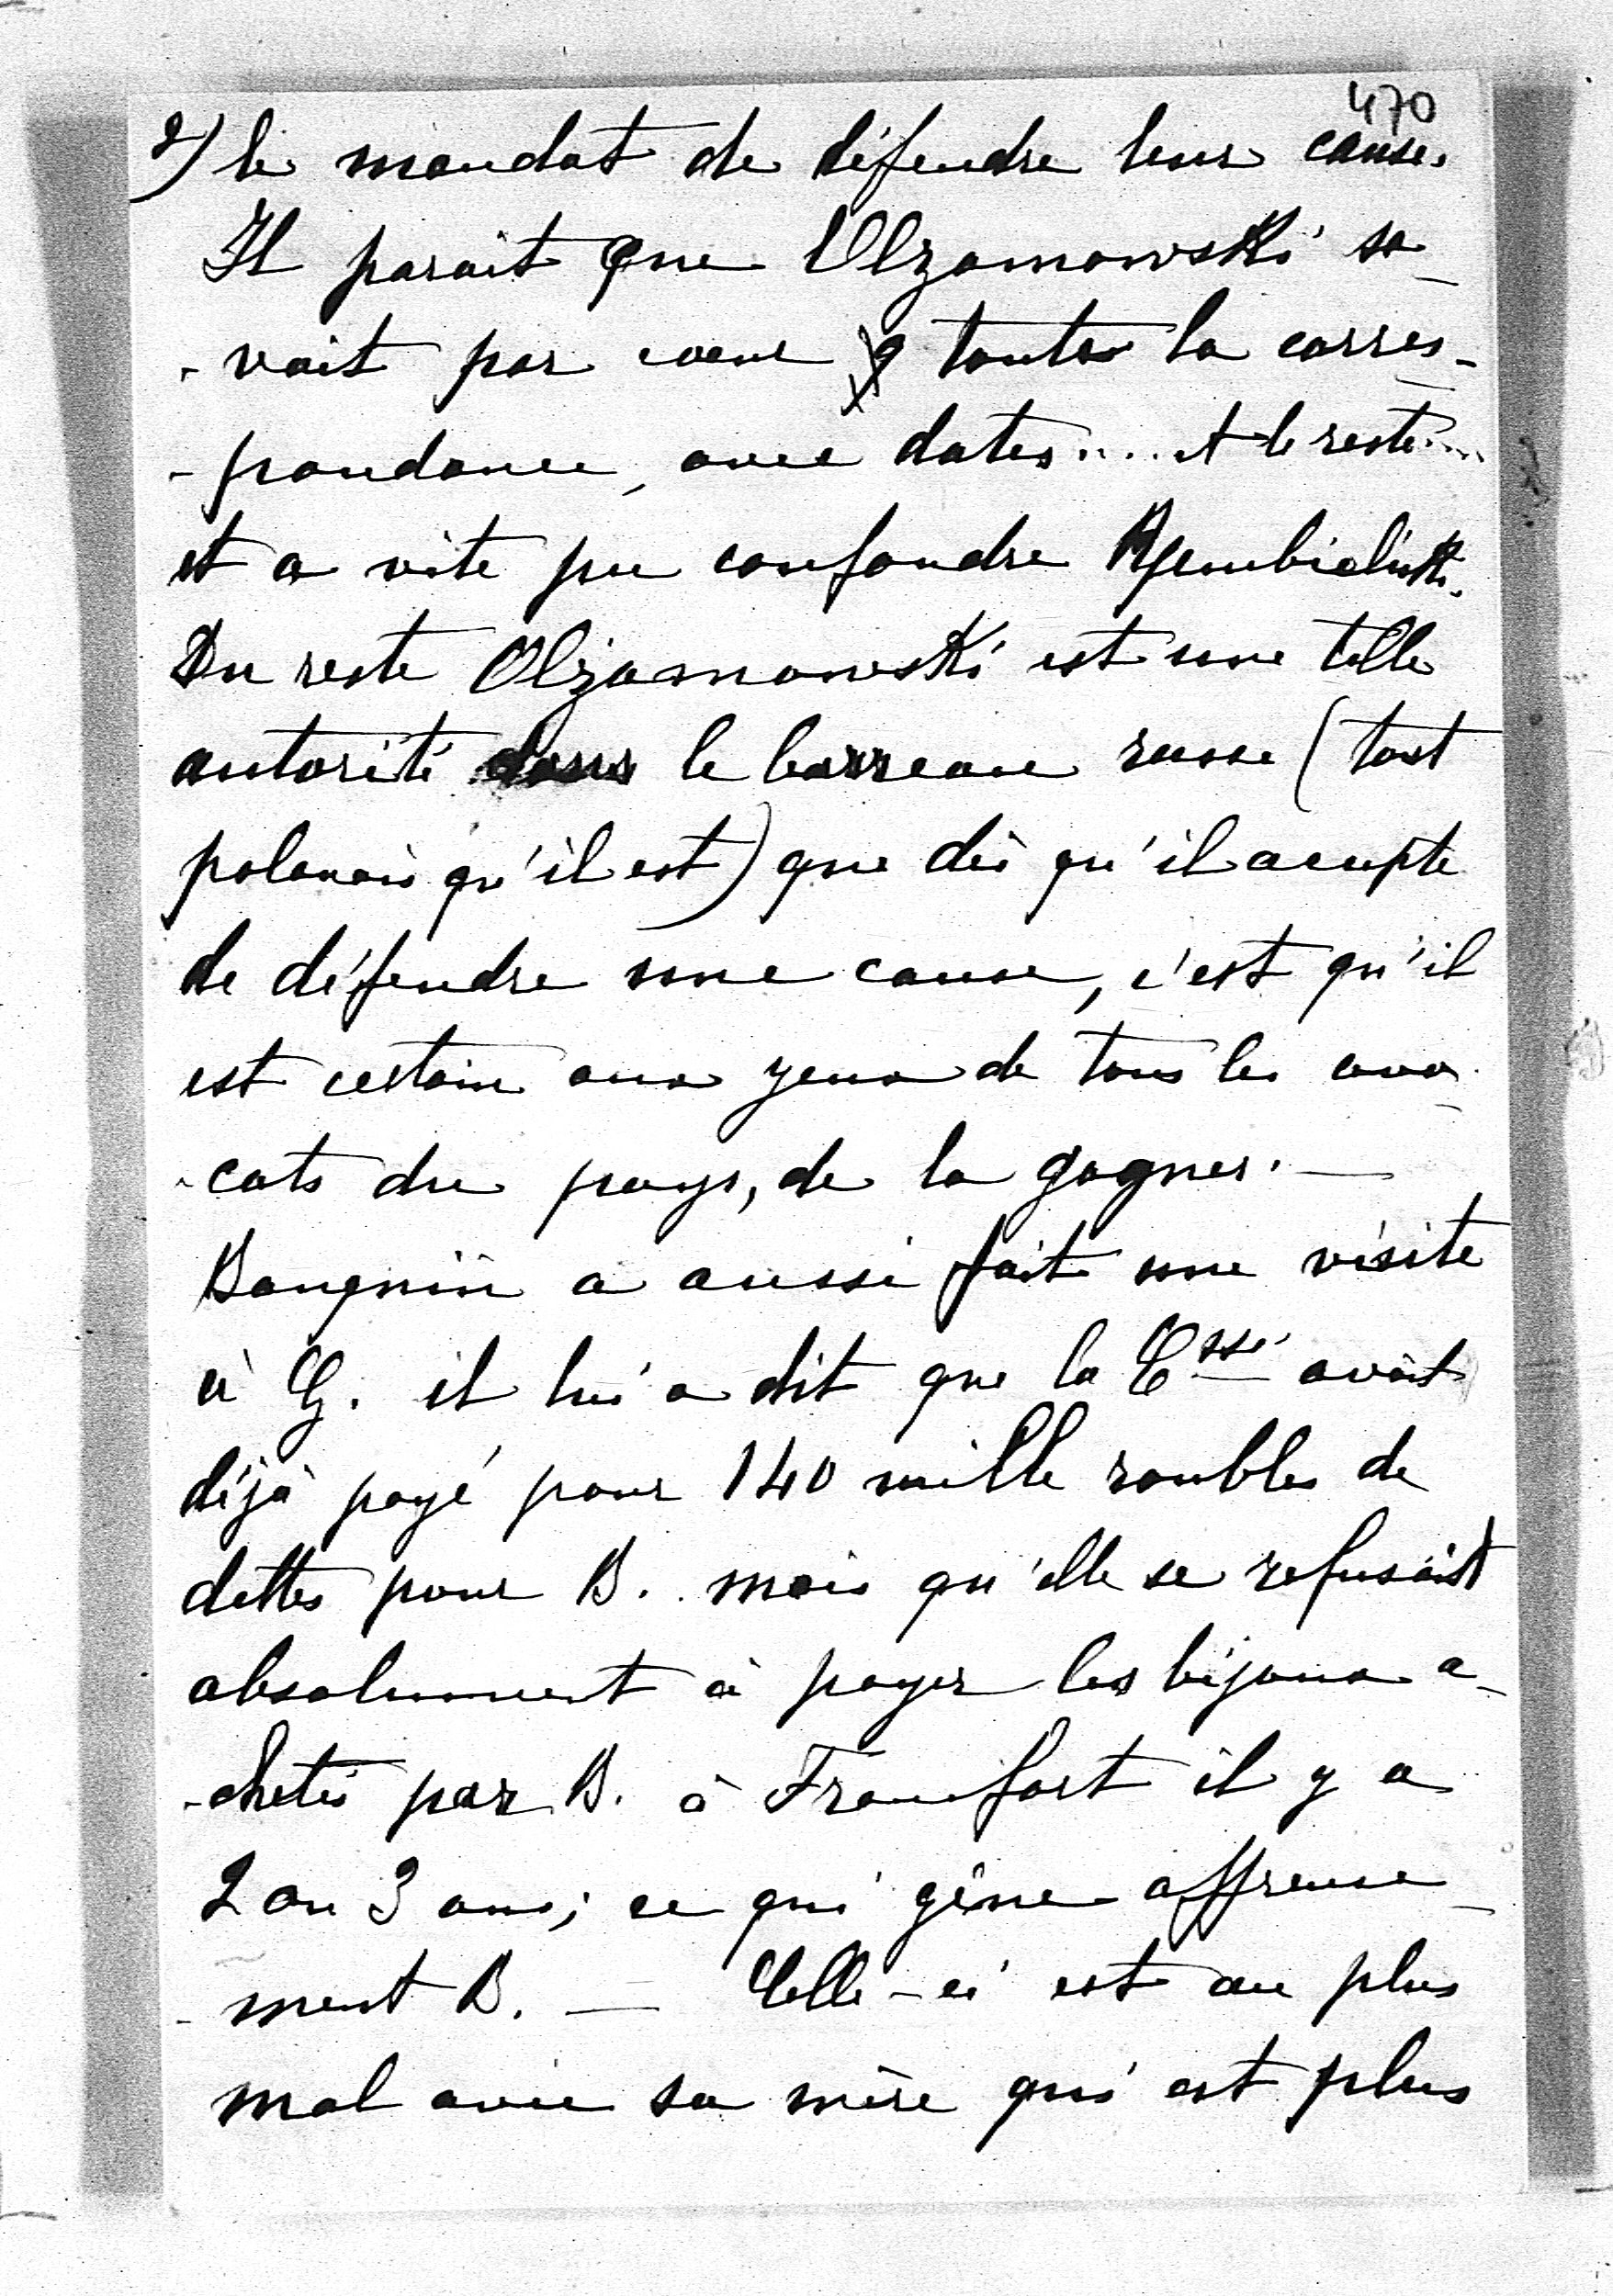 470
2) le mandat de défendre leur cause.
Il parait que Olzamowski sa-
-vait par coeur toute la corres-
-pondance, avec dates.... et le reste....
et a vite pu confondre
Du reste Olzamowski est une telle
autorité dans le barreau russe (tout
polonais qu'il est) que dès qu'il accepte
de défendre une cause, c'est qu'il
est certain aux yeux de tous les avo-
-cats du pays, de la gagner. —
a aussi fait une visite
à G. il lui a dit que la Csse avait
déjà payé pour 140 mille roubles de
dettes pour B. mais qu'elle se refusait
absolument à payer les bijoux a-
-chetés par B. à Francfort il y a
2 ou 3 ans; ce qui gêne affreuse-
-ment B. — Celle-ci est au plus
mal avec sa mère qui est plus